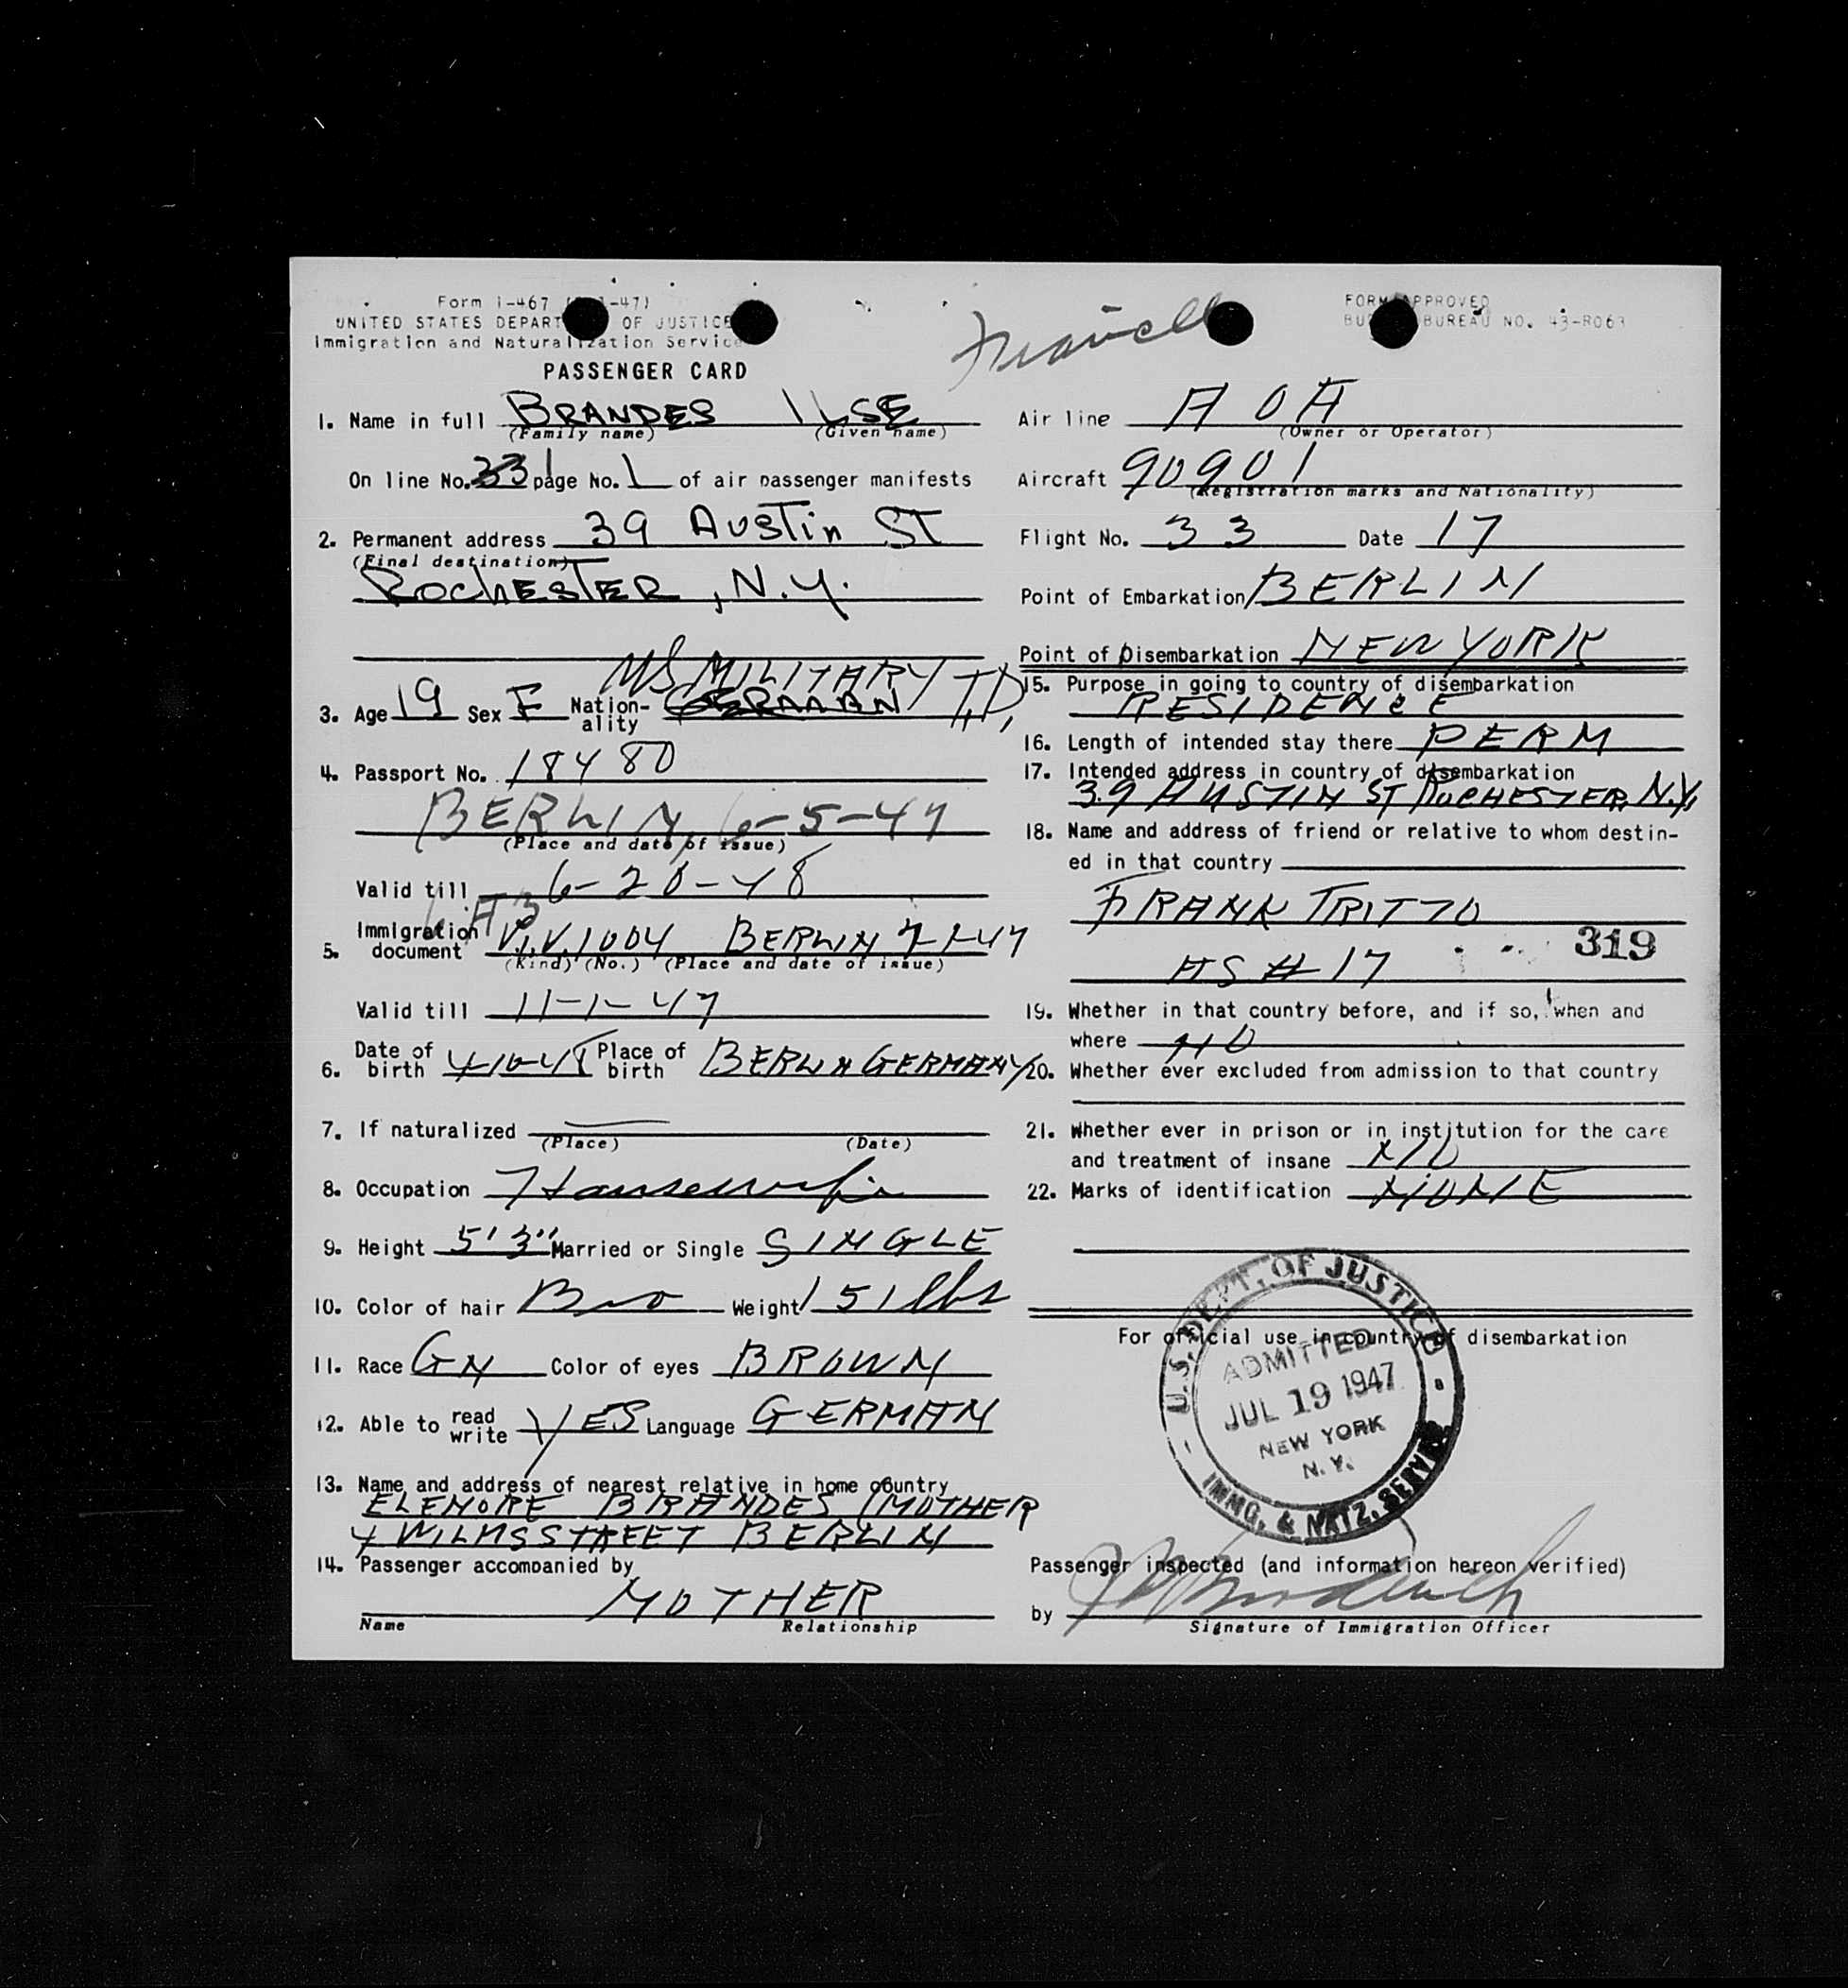 Form I-467 -47)
UNITED STATES DEPART OF JUSTICE
Immigration and Naturalization Service
PASSENGER CARD
FORM APPROVED
BUREAU NO. 43-R063
1. Name in full BRANDES ILSE
(Family name) (Given name)
On line No. 331 page No. 1 of air passenger manifests
2. Permanent address 39 Austin ST
(Final destination)
ROCHESTER, N.Y.
US MILITARY T.D.
3. Age 19 Sex F Nation-ality GERMAN
4. Passport No. 18480
BERLIN, 6-5-47
(Place and date of issue)
Valid till 6-20-48
5. Immigration document V.I.V. 1004 BERLIN 7-1-47
(Kind) (No.) (Place and date of issue)
Valid till 11-1-47
6. Date of birth Place of birth BERLIN GERMANY
7. If naturalized
(Place) (Date)
8. Occupation Housewife
9. Height 5' 3" Married or Single SINGLE
10. Color of hair Bro Weight 151 lbs
11. Race GN Color of eyes BROWN
12. Able to read write YES Language GERMAN
13. Name and address of nearest relative in home country
ELENORE BRANDES (MOTHER
4 WILMSSTREET BERLIN
14. Passenger accompanied by
MOTHER
Name Relationship
Air line A O A
(Owner or Operator)
Aircraft 90901
(Registration marks and Nationality)
Flight No. 33 Date 17
Point of Embarkation BERLIN
Point of Disembarkation NEW YORK
15. Purpose in going to country of disembarkation
RESIDENCE
16. Length of intended stay there PERM
17. Intended address in country of disembarkation
39 AUSTIN ST ROCHESTER, N.Y.
18. Name and address of friend or relative to whom destin-
ed in that country
FRANK TRITTO
319
AS # 17
19. Whether in that country before, and if so, when and
where NO
20. Whether ever excluded from admission to that country
21. Whether ever in prison or in institution for the care
and treatment of insane NO
22. Marks of identification NONE
For official use in country of disembarkation
U.S. DEPT. OF JUSTICE
ADMITTED
JUL 19 1947
NEW YORK
N.Y.
IMMG. & NATZ. SERVICE
Passenger inspected (and information hereon verified)
by
Signature of Immigration Officer